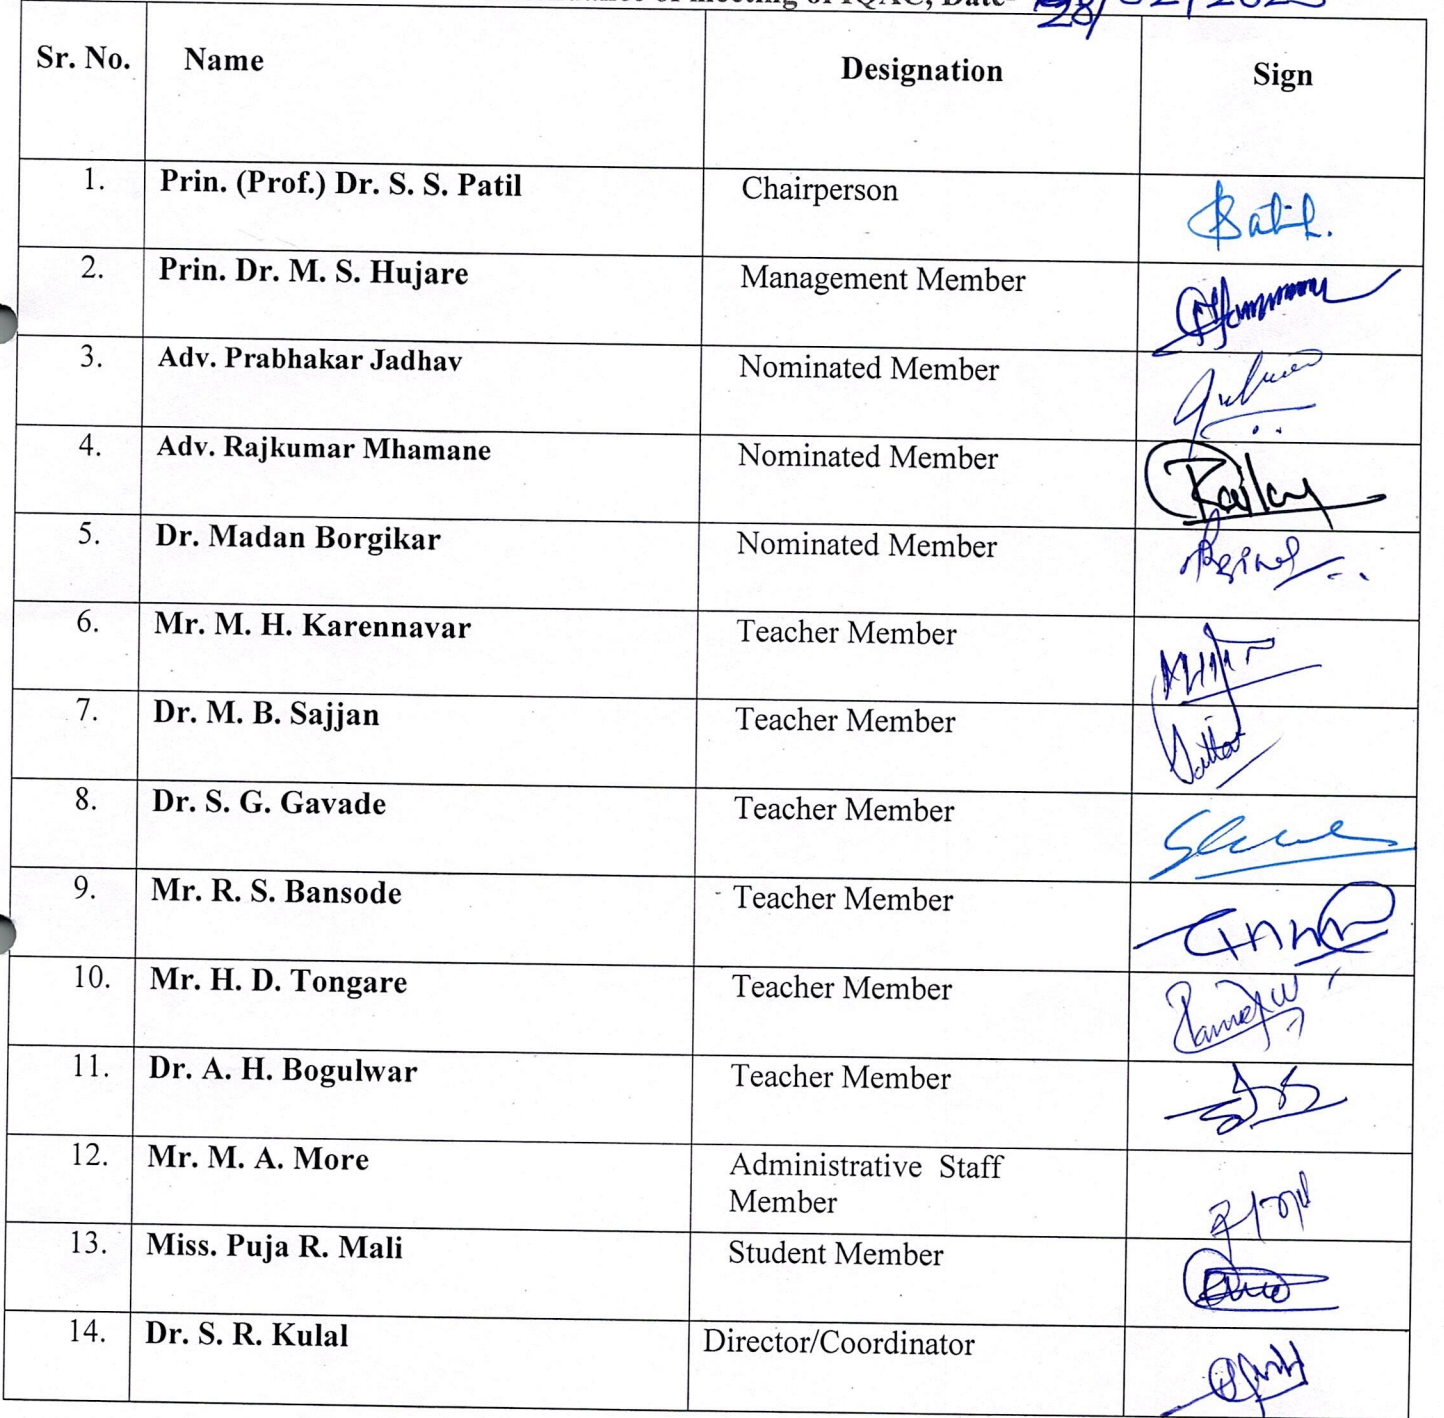 of meeting of IQAC, Date- 28/02/2023
Sr. No. Name Designation Sign
1. Prin. (Prof.) Dr. S. S. Patil Chairperson
2. Prin. Dr. M. S. Hujare Management Member
3. Adv. Prabhakar Jadhav Nominated Member
4. Adv. Rajkumar Mhamane Nominated Member
5. Dr. Madan Borgikar Nominated Member
6. Mr. M. H. Karennavar Teacher Member
7. Dr. M. B. Sajjan Teacher Member
8. Dr. S. G. Gavade Teacher Member
9. Mr. R. S. Bansode Teacher Member
10. Mr. H. D. Tongare Teacher Member
11. Dr. A. H. Bogulwar Teacher Member
12. Mr. M. A. More Administrative Staff
Member
13. Miss. Puja R. Mali Student Member
14. Dr. S. R. Kulal Director/Coordinator